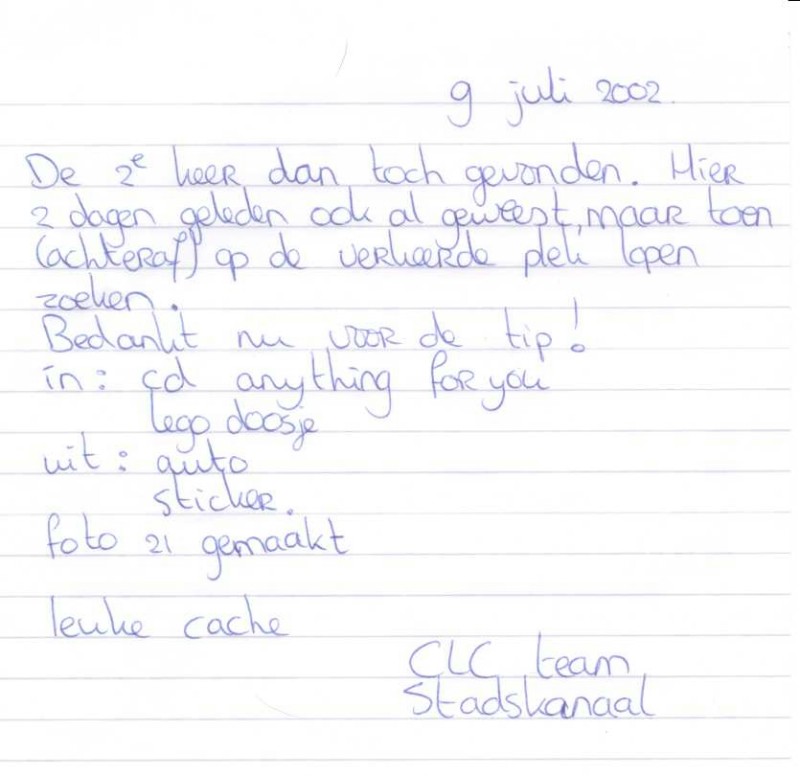 9 juli 2002.
De 2e keer dan toch gevonden. Hier
2 dagen geleden ook al geweest, maar toen
(achteraf) op de verkeerde plek lopen
zoeken.
Bedankt nu voor de tip!
in: cd anything for you
lego doosje
uit: auto
sticker.
foto 21 gemaakt
leuke cache
CLC team
Stadskanaal